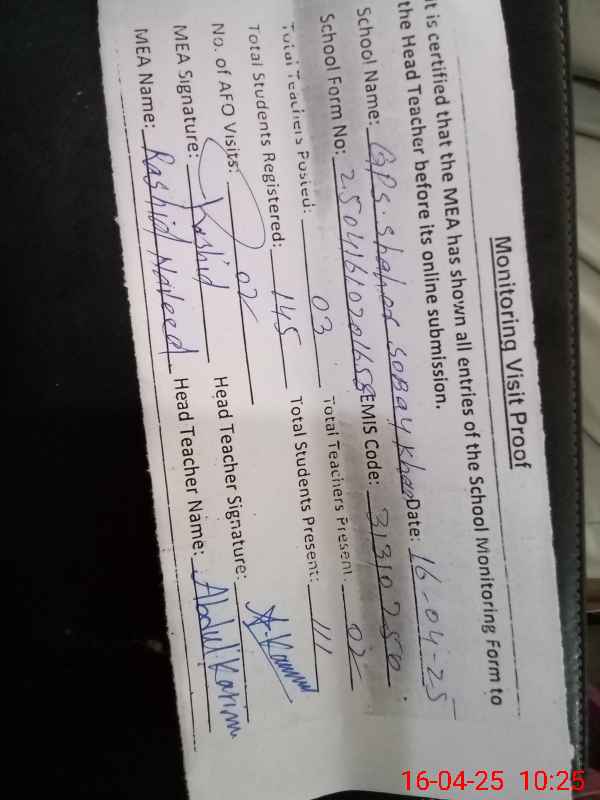 Monitoring Visit Proof
It is certified that the MEA has shown all entries of the School Monitoring Form to
the Head Teacher before its online submission.
School Name: GPS. Shaher Sobay Khan Date: 16-04-25
School Form No: 25041610201658 EMIS Code: 31310250
Total Teachers Posted: 03 Total Teachers Present: 02
Total Students Registered: 145 Total Students Present: 111
No. of AFO Visits: 02
MEA Signature: Rashid Head Teacher Signature: A.Karim
MEA Name: Rashid Naleed Head Teacher Name: Abdul.Karim
16-04-25 10:25